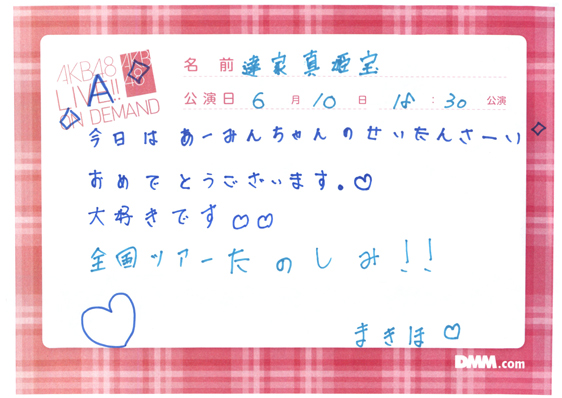 AKB48
LIVE!!
ON DEMAND
AKB
48
A
名前 達家真姫宝
公演日 6月10日 18:30公演
今日はあーみんちゃんのせいたんさーい
おめでとうございます。♡
大好きです♡♡
全国ツアーたのしみ!!
まきほ♡
DMM.com